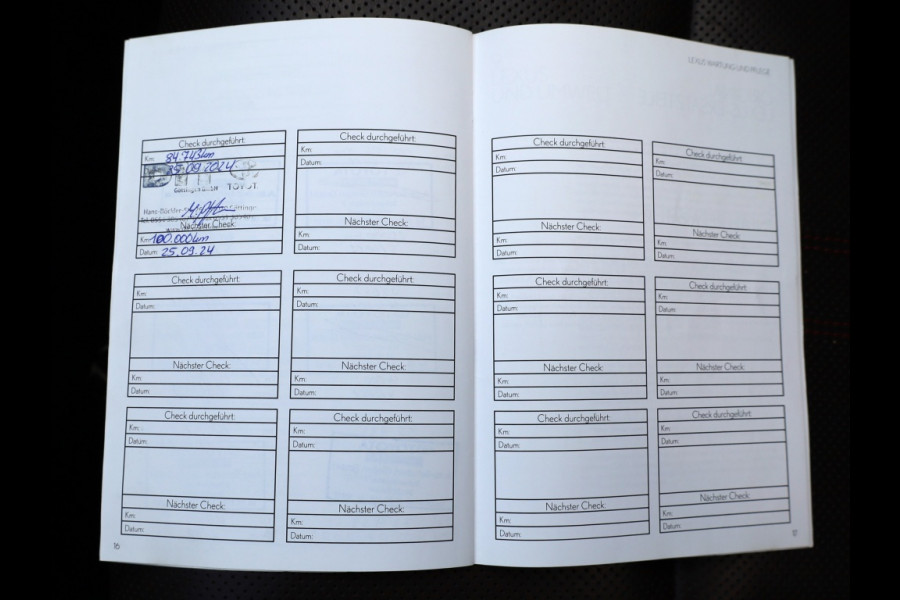 LEXUS WARTUNG UND PFLEGE
Check durchgeführt:
Km: 84.743km
25.09.2024
TOYOT
Nächster Check:
Km: 100.000km
Datum: 25.09.24
Check durchgeführt:
Km:
Datum:
Nächster Check:
Km:
Datum:
Check durchgeführt:
Km:
Datum:
Nächster Check:
Km:
Datum:
Check durchgeführt:
Km:
Datum:
Nächster Check:
Km:
Datum:
Check durchgeführt:
Km:
Datum:
Nächster Check:
Km:
Datum:
Check durchgeführt:
Km:
Datum:
Nächster Check:
Km:
Datum:
16
Check durchgeführt:
Km:
Datum:
Nächster Check:
Km:
Datum:
Check durchgeführt:
Km:
Datum:
Nächster Check:
Km:
Datum:
Check durchgeführt:
Km:
Datum:
Nächster Check:
Km:
Datum:
Check durchgeführt:
Km:
Datum:
Nächster Check:
Km:
Datum:
Check durchgeführt:
Km:
Datum:
Nächster Check:
Km:
Datum:
Check durchgeführt:
Km:
Datum:
Nächster Check:
Km:
Datum:
17